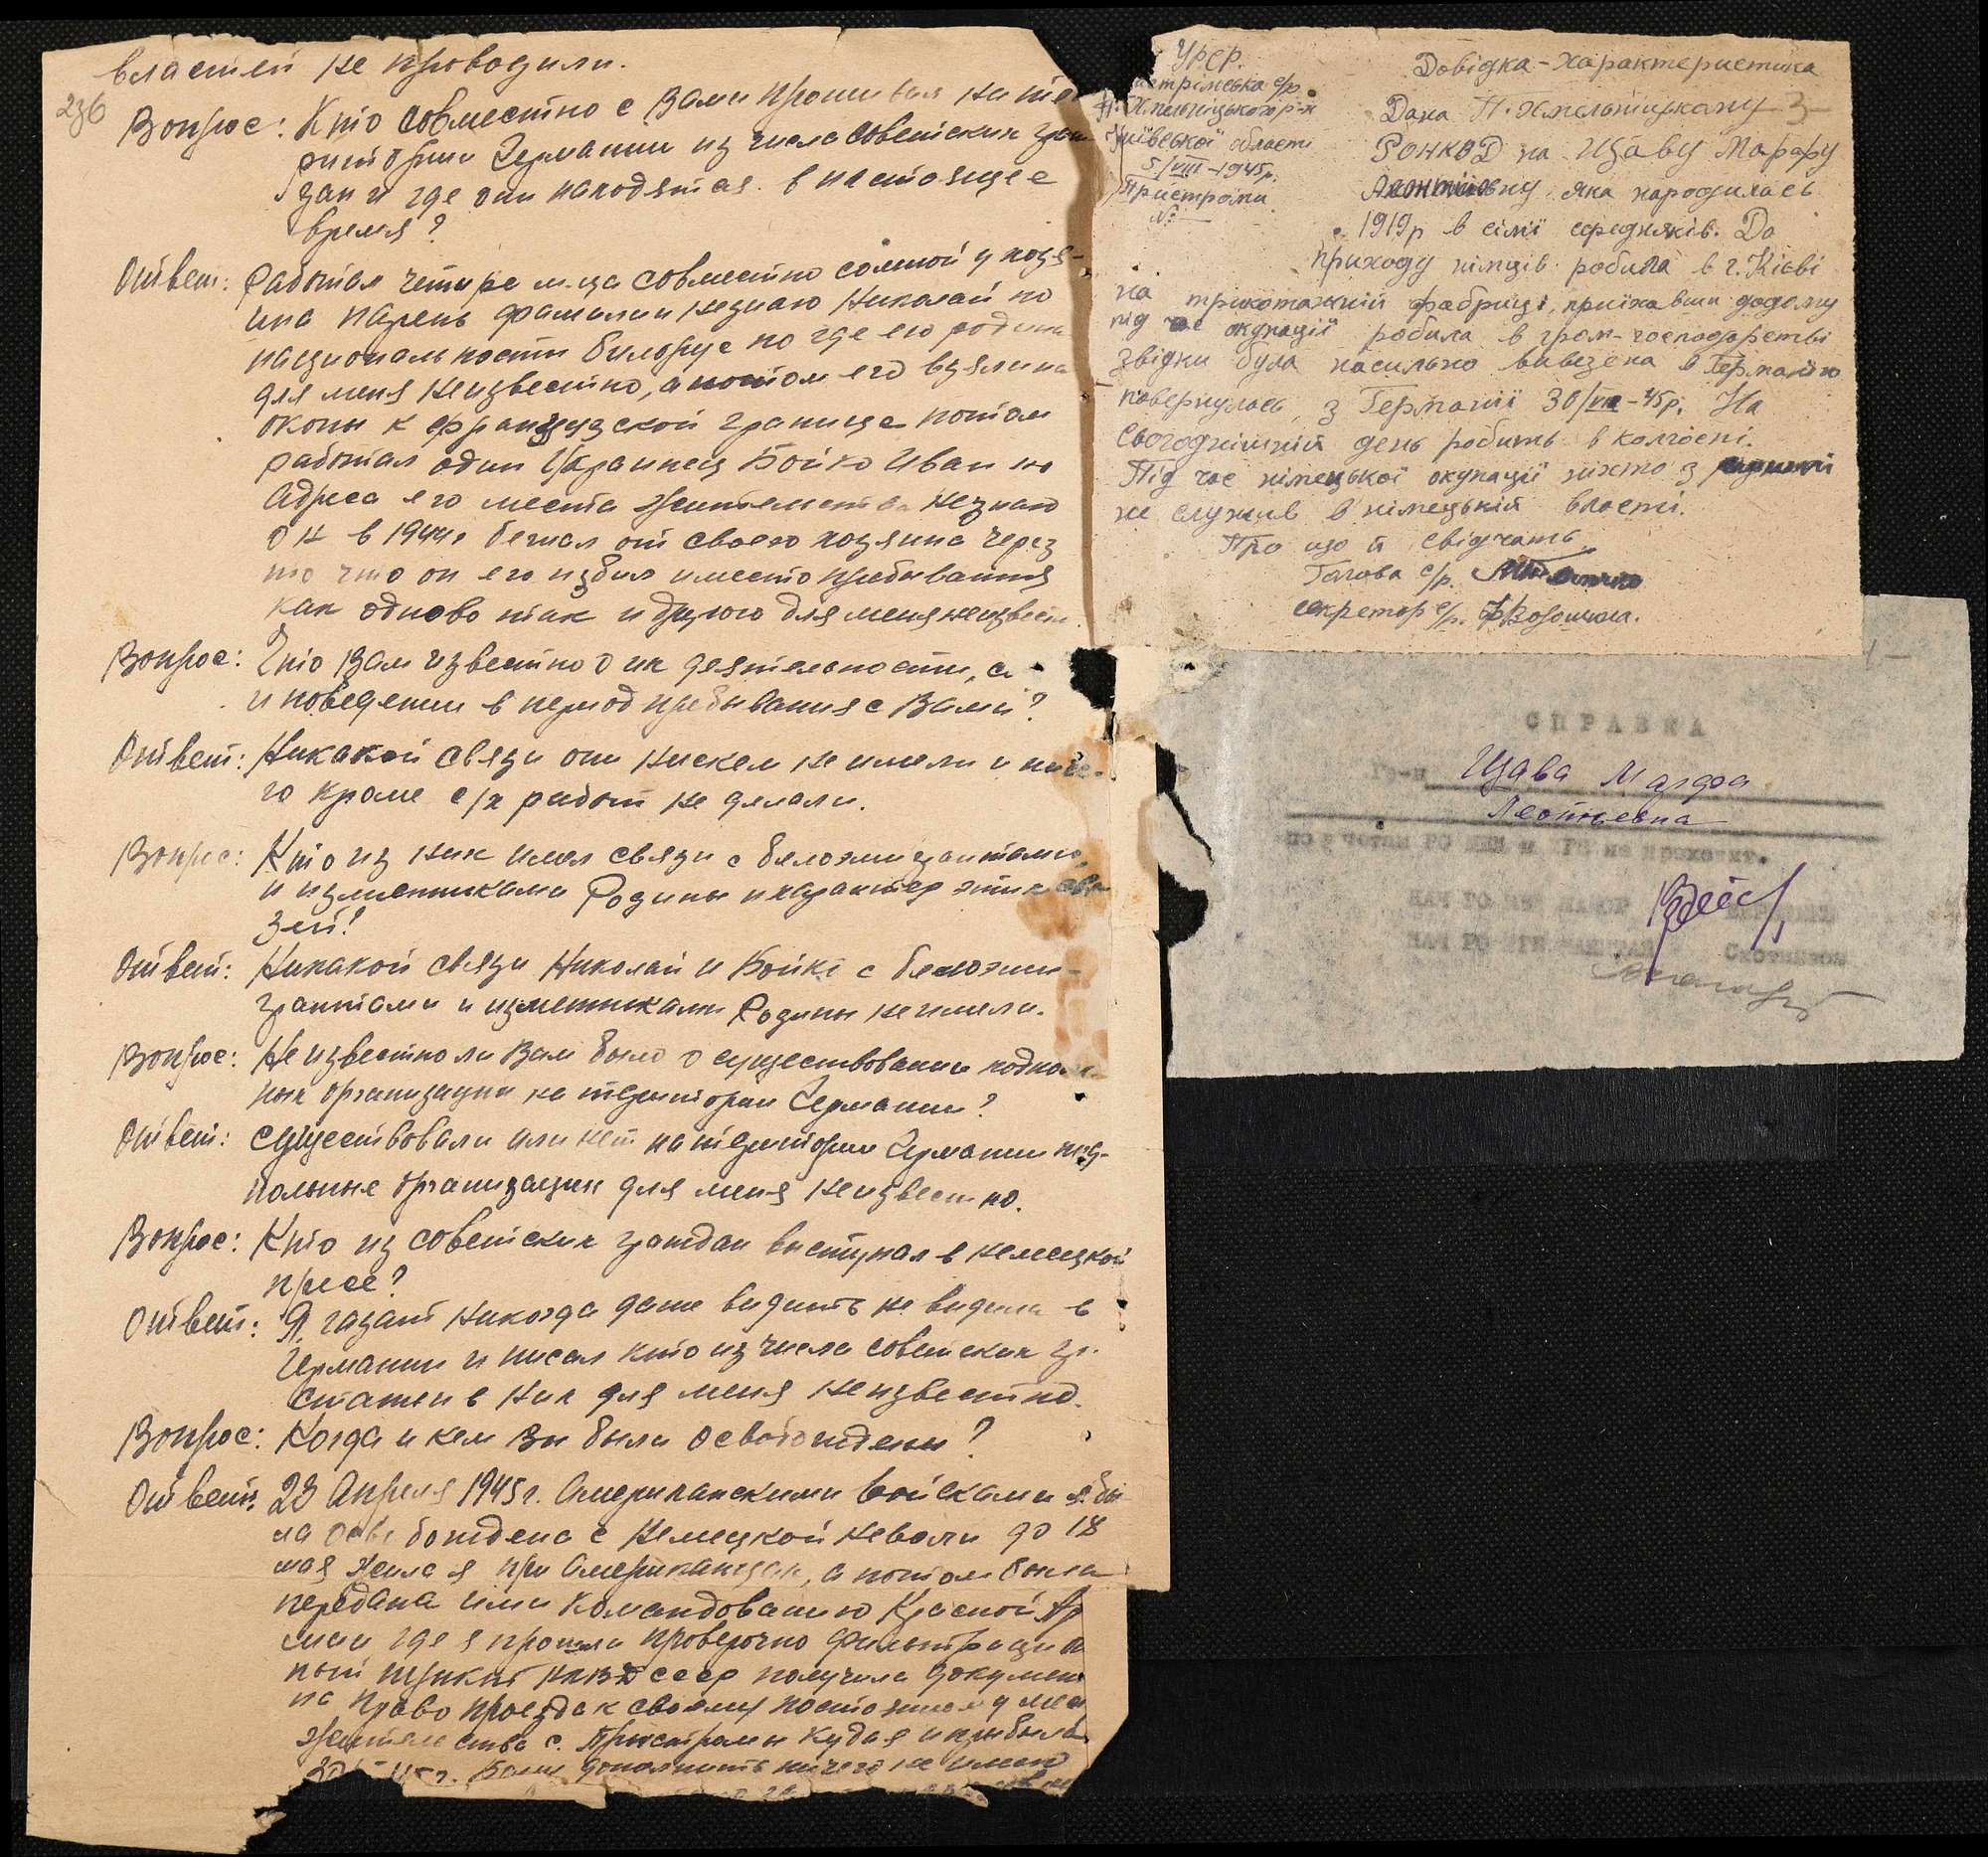 236
властей не проводили.
Вопрос: Кто совместно с Вами проживал на те
ритории Германии из числа советских граж
дан и где они находятся в настоящее
время?
Ответ: Работал четыре м-ца совместно сомной у хозя-
ина парень фамилии незнаю Николай по
национальности билорус но где его родина
для меня неизвестно, а потом его взяли на
окопы к французской границе потом
работал один Украинец Бойко Иван но
адреса его места жительства незнаю
он в 1944г бежал от своего хозяина через
то что он его избил и место пребывания
как одново так и другого для меня неизвестн.
Вопрос: Что Вам известно о их деятельности, а
и поведении в период пребывания с Вами?
Ответ: Никакой связи они нискем не имели и ниче-
го кроме с/х работ не делали.
Вопрос: Кто из них имел связи с белоэмигрантами
и изменниками Родины и характер этих свя
зей?
Ответ: Никакой связи Николай и Бойко с белоэми-
грантами и изменниками Родины не имели.
Вопрос: Не известно ли Вам было о существовании подполь
ных организации на територии Германии?
Ответ: Существовали или нет на територии Германии под-
польные организации для меня неизвестно.
Вопрос: Кто из советских граждан выступал в немецкой
пресе?
Ответ: Я газат никогда даже видить не видила в
Германии и писал кто из числа советских гр.
статьи в них для меня неизвестно.
Вопрос: Когда и кем Вы были освобождены?
Ответ: 23 Апреля 1945г. Американскими войсками я бы
ла освобождена с немецкой неволи до 18
мая жила я при Американцах, а потом была
передана ими командованию Красной Ар
мии где я прошла проверочно фильтрацион
ный пункт НКВД СССР получила документ
на право проезда к своему постоянному мес
жительства с. Пристромы куда я и прибыла
Более дополнить ничего не имею
УРСР.
Пристрімська с/р.
П-Хмельніцького р-н
Київської області
5/VIII-1945р.
Пристроми
№
Довідка-характеристика
3
Дана П-Хмельницькому
РОНКВД на Щаву Марфу
Леонтіївну яка народилась
1919р в сімії середняків. До
приходу німців робила в г. Кієві
на трикотажній фабриці, приїхавши додому
під час окупації робила в гром-господарстві
звідки була насильно вивезена в Германію
повернулась з Германії 30/VII-45р. На
сьогоднішній день робить в колгоспі.
Під час німецької окупації ніхто з родини
не служив в німецькій власті.
Про що й свідчать
Голова с/р.
секретар с/р.
СПРАВКА
Гр-н Щава Марфа
Леонтьевна
по учетам РО НКВД и НКГБ не проходит.
НАЧ РО НКВД МАЙОР
НАЧ РО НКГБ КАПИТАН